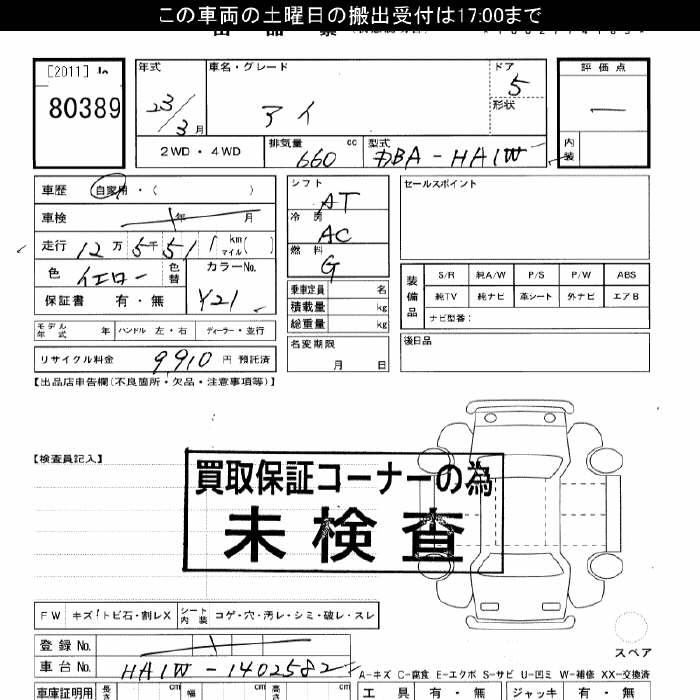 この車両の土曜日の搬出受付は17:00まで
[2011]
80389
年式 23/3月
車名・グレード アイ
ドア 5
形状
評価点 一
内装
2WD・4WD
排気量 660 cc
型式 DBA-HA1W
車歴 自家用・( )
車検 年 月
走行 12万5千51 km マイル( )
色 イエロー 色替
カラーNo. Y21
保証書 有・無
シフト AT
冷房 AC
燃料 G
乗車定員 名
積載量 kg
総重量 kg
名変期限 月 日
セールスポイント
装備品
S/R 純A/W P/S P/W ABS
純TV 純ナビ 革シート 外ナビ エアB
ナビ型番:
後日品
モデル年式 年 ハンドル 左・右 ディーラー・並行
リサイクル料金 9910 円 預託済
【出品店申告欄(不良箇所・欠品・注意事項等)】
【検査員記入】
買取保証コーナーの為
未検査
FW キズ!トビ石・割レX シート内装 コゲ・穴・汚レ・シミ・破レ・スレ
スペア
登録No.
車台No. HA1W-1402582
A-キズ C-腐食 E-エクボ S-サビ U-凹ミ W-補修 XX-交換済
車庫証明用 長さ cm 幅 cm 高さ cm
工具 有・無 ジャッキ 有・無